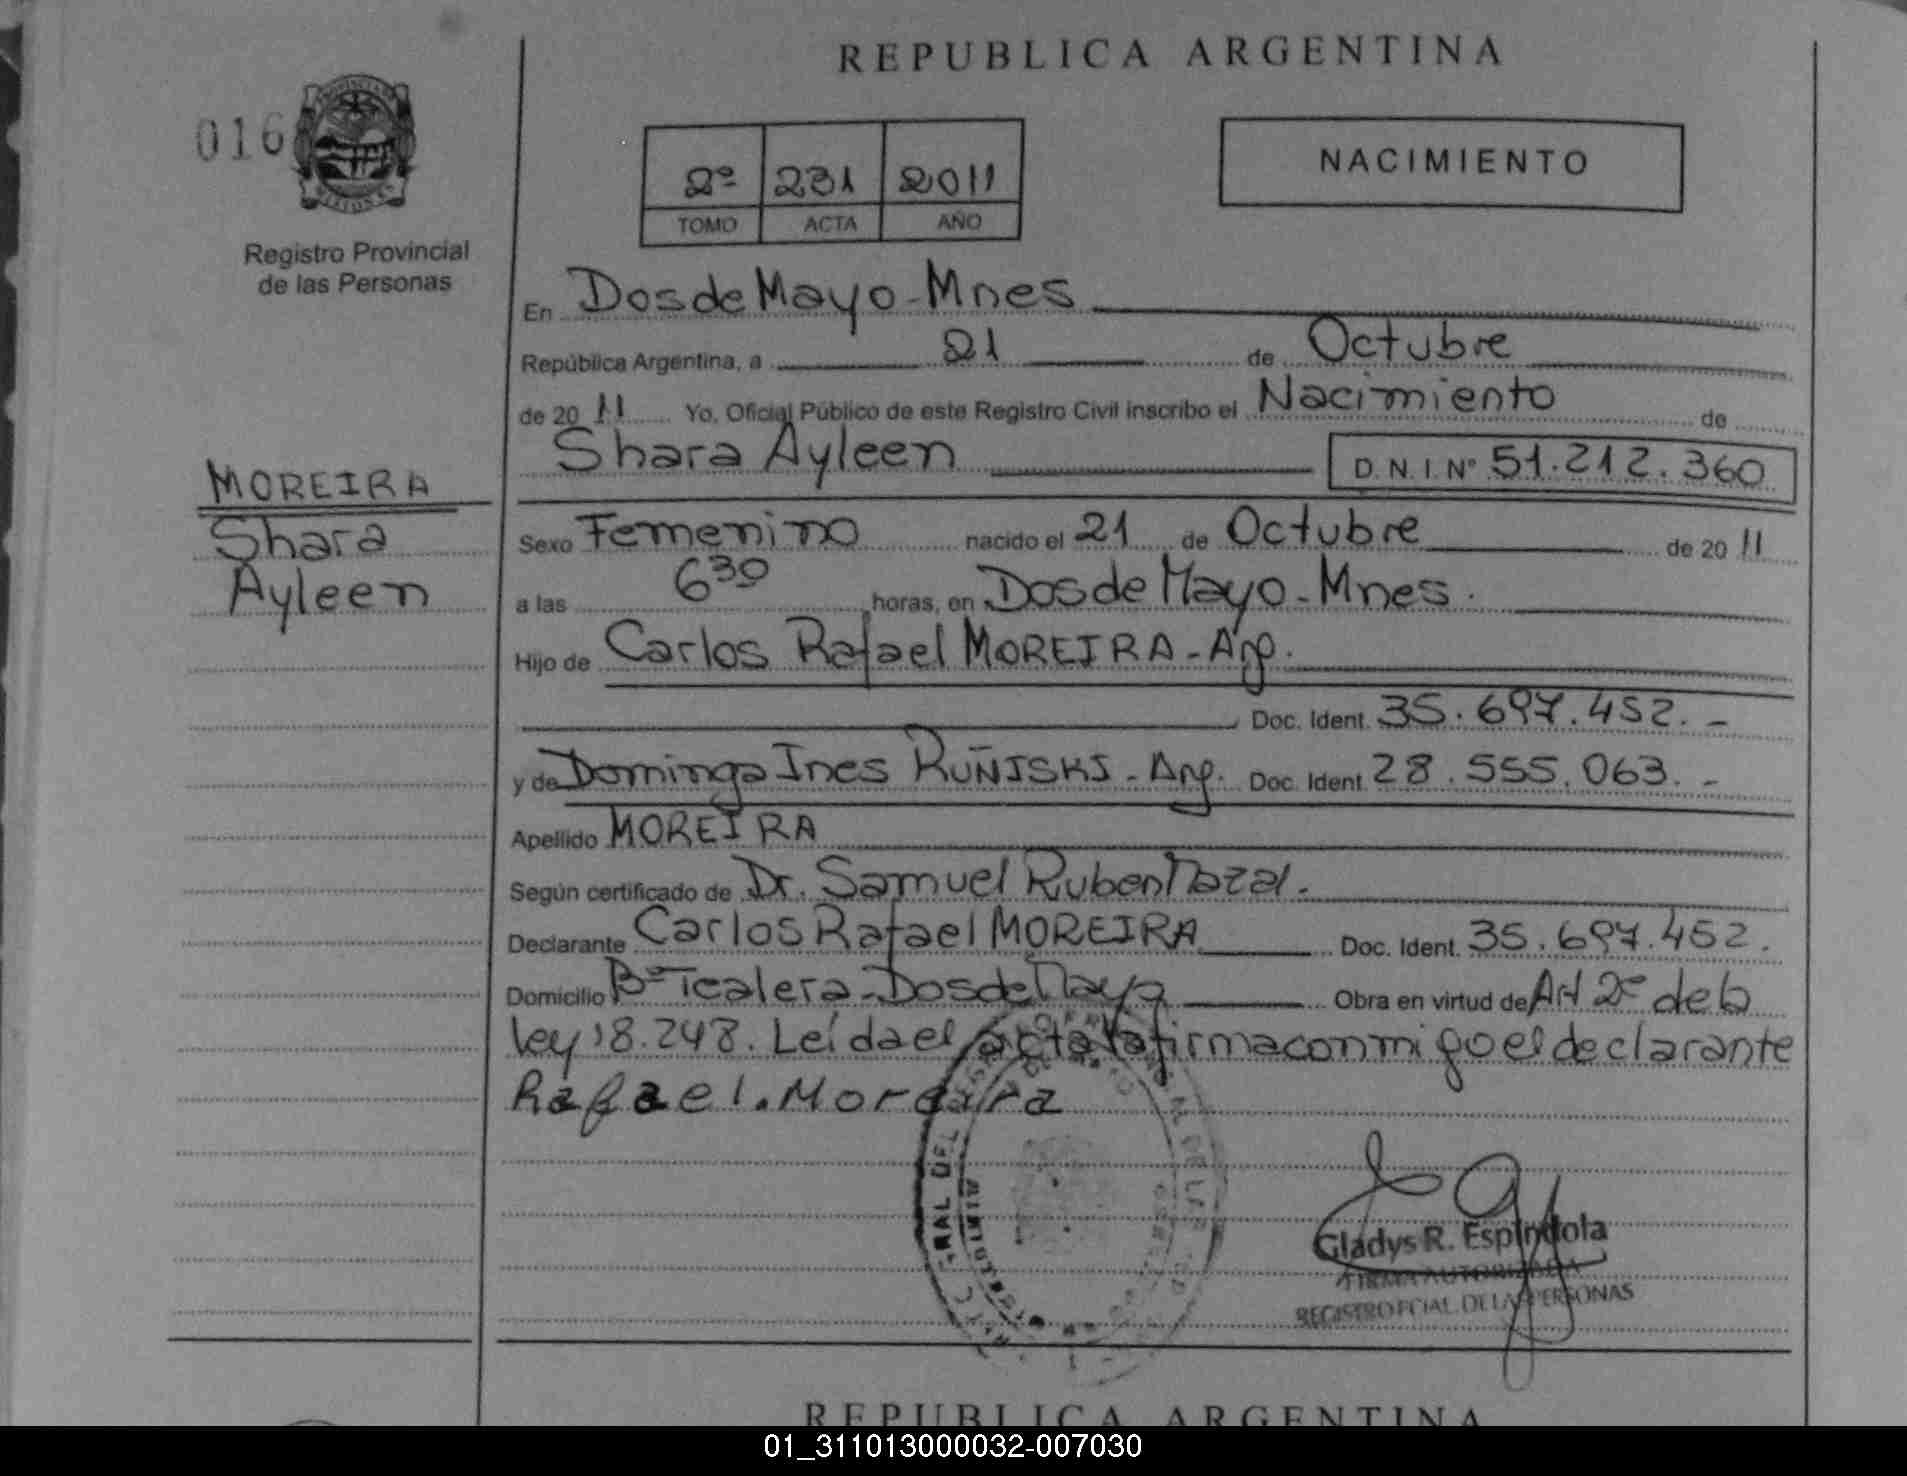 REPUBLICA ARGENTINA
016
2º 231 2011
TOMO ACTA AÑO
NACIMIENTO
Registro Provincial
de las Personas
En Dos de Mayo - Mnes
República Argentina, a 21 de Octubre
de 20 11 Yo, Oficial Público de este Registro Civil inscribo el Nacimiento de
Shara Ayleen D.N.I. Nº 51.212.360
MOREIRA
Shara
Ayleen
Sexo Femenino nacido el 21 de Octubre de 20 11
a las 6 30 horas, en Dos de Mayo - Mnes.
Hijo de Carlos Rafael MOREIRA - Arg.
Doc. Ident. 35.697.452. -
y de Dominga Ines RUÑISKI - Arg. Doc. Ident. 28.555.063. -
Apellido MOREIRA
Según certificado de Dr. Samuel Ruben
Declarante Carlos Rafael MOREIRA Doc. Ident. 35.697.452.
Domicilio Bº Tealera - Dos de Mayo Obra en virtud de Art 2º de la
ley 18.248. Leída el acta la firma conmigo el declarante
Rafael. Moreira
Gladys R. Espindola
FIRMA AUTORIZADA
REGISTRO PCIAL. DE LAS PERSONAS
REPUBLICA ARGENTINA
01_311013000032-007030